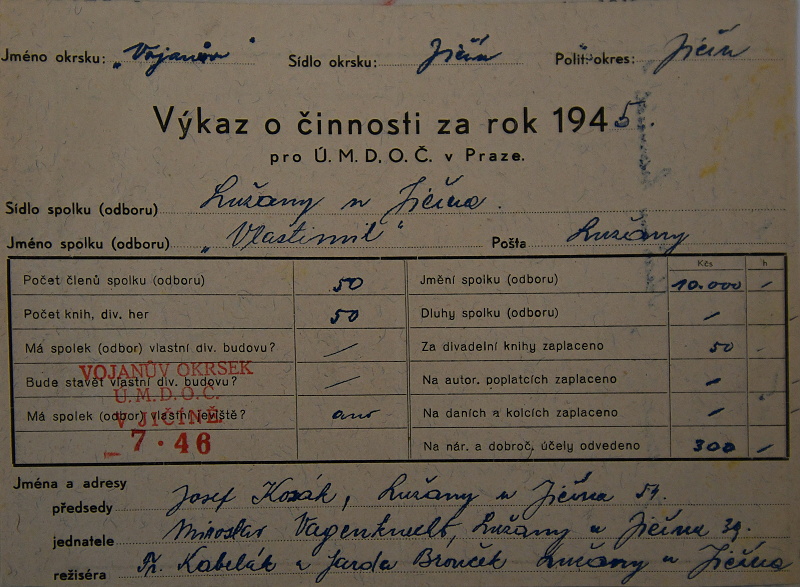 Jméno okrsku: „Vojanův" Sídlo okrsku: Jičín Polit. okres: Jičín
Výkaz o činnosti za rok 1945.
pro Ú. M. D. O. Č. v Praze.
Sídlo spolku (odboru) Lužany u Jičína.
Jméno spolku (odboru) „Vlastimil" Pošta Lužany
Kčs h
Počet členů spolku (odboru) 50 Jmění spolku (odboru) 10.000 /
Počet knih, div. her 50 Dluhy spolku (odboru) /
Má spolek (odbor) vlastní div. budovu? / Za divadelní knihy zaplaceno 50 -
VOJANŮV OKRSEK
Bude stavět vlastní div. budovu? / Na autor. poplatcích zaplaceno /
Ú. M. D. O. Č.
V JIČÍNĚ
Má spolek (odbor) vlastní jeviště? ano Na daních a kolcích zaplaceno /
- 7 · 46 Na nár. a dobroč. účely odvedeno 300 /
Jména a adresy
předsedy Josef Kozák, Lužany u Jičína 54.
jednatele Miroslav Lužany u Jičína 39.
režiséra Fr. Kabelák a Jarda Brouček Lužany u Jičína